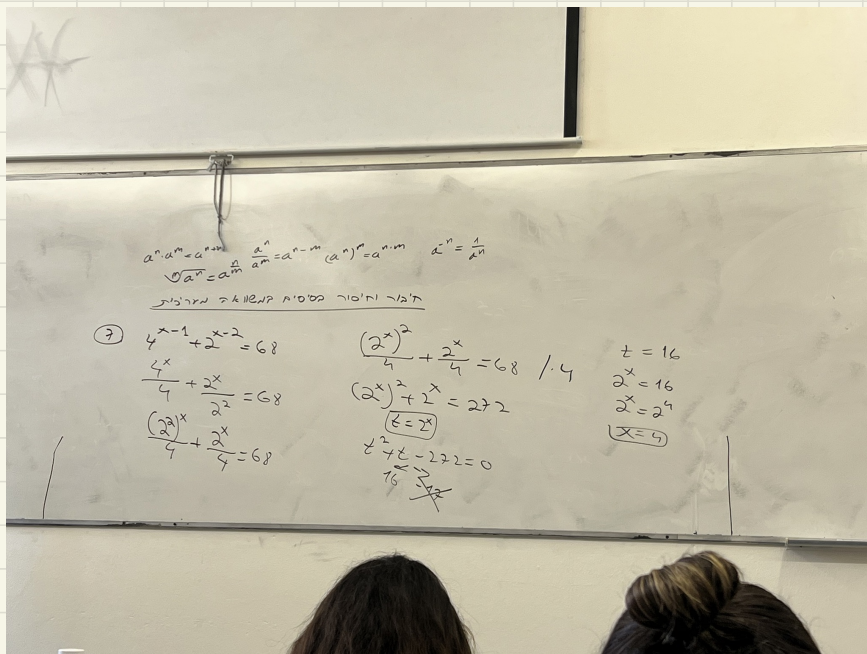 aⁿ·aᵐ=aⁿ⁺ᵐ aⁿ/aᵐ=aⁿ⁻ᵐ (aⁿ)ᵐ=aⁿ·ᵐ a⁻ⁿ=1/aⁿ
ᵐ√aⁿ=a^(n/m)
חיבור וחיסור בסיסים במשוואה מעריכית
7
4ˣ⁻¹+2ˣ⁻²=68
4ˣ/4+2ˣ/2²=68
(2²)ˣ/4+2ˣ/4=68
(2ˣ)²/4+2ˣ/4=68 /·4
(2ˣ)²+2ˣ=272
t=2ˣ
t²+t-272=0
16 -17
t=16
2ˣ=16
2ˣ=2⁴
x=4